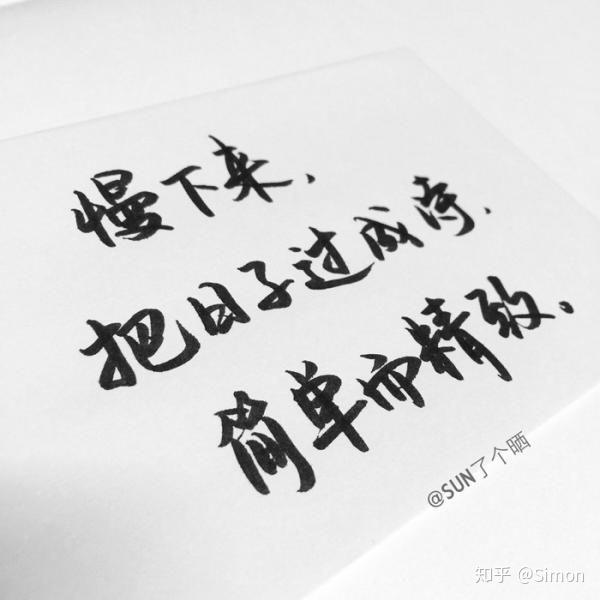 慢下来，
把日子过成诗，
简单而精致。
@SUN了个晒
知乎 @Simon